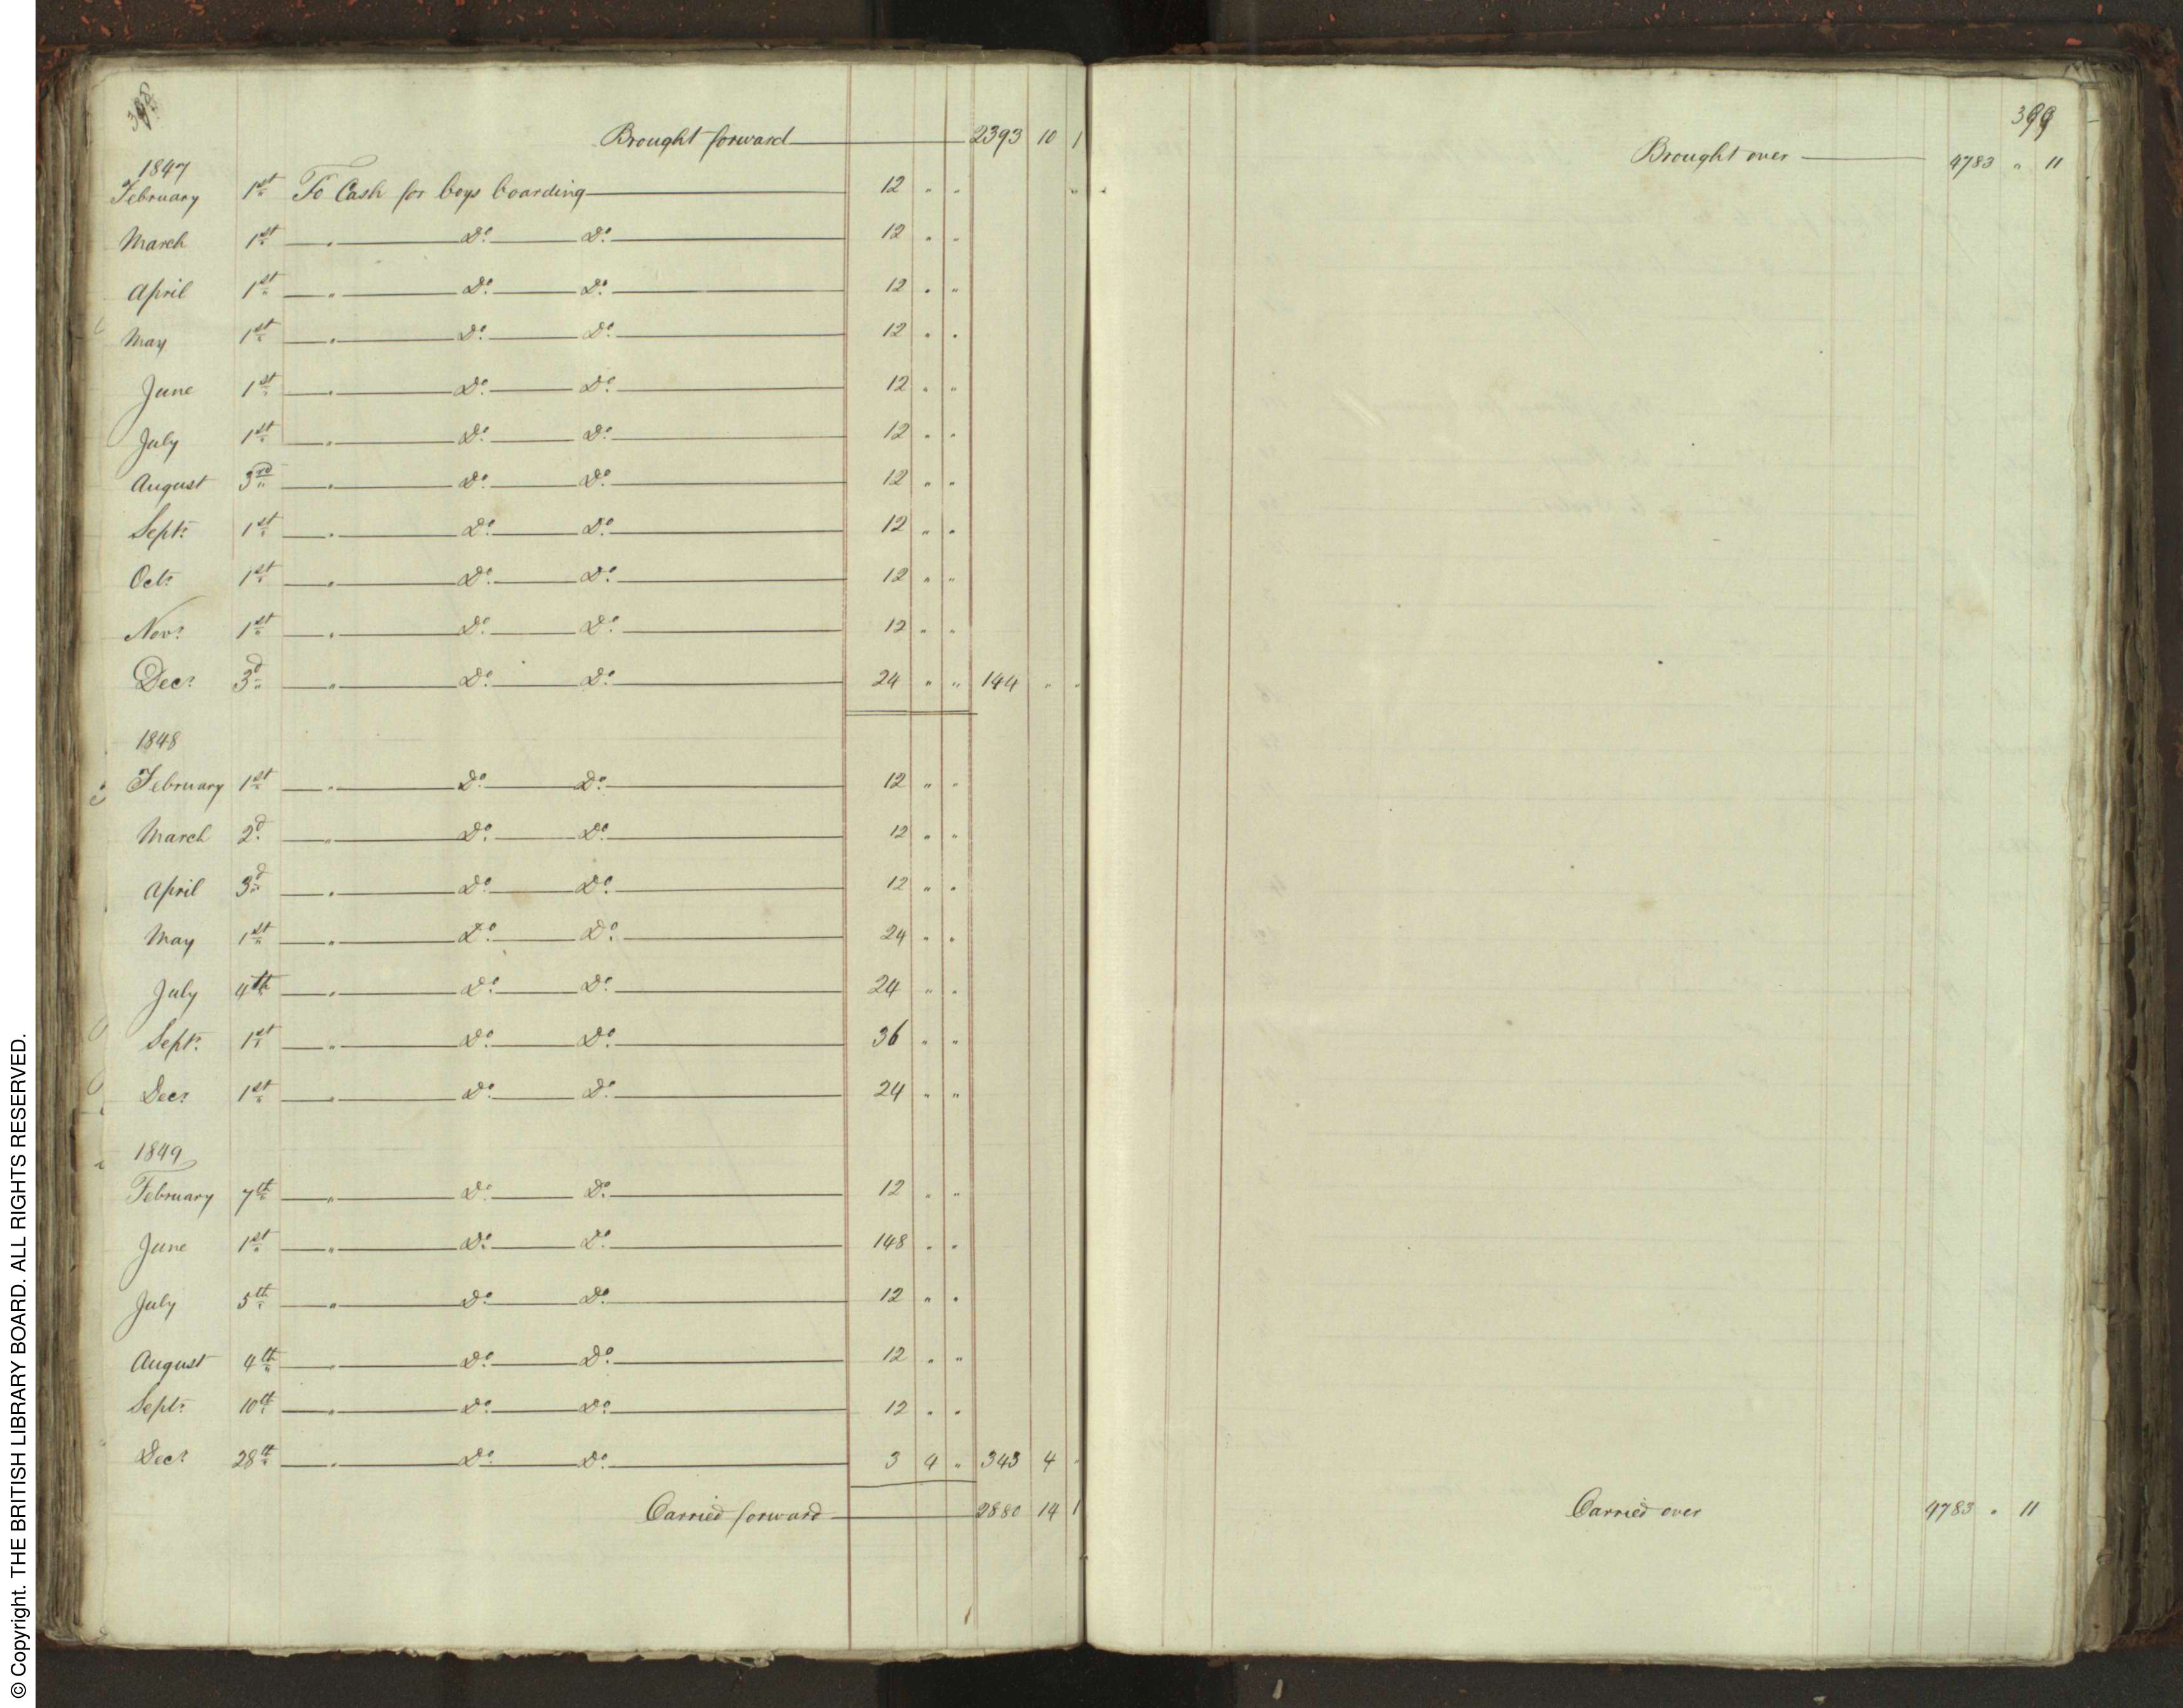 398
Brought forward 2393 10 1
1847
February 1st To Cash for boys boarding 12 " "
March 1st " Do. Do. 12 " "
April 1st " Do. Do. 12 " "
May 1st " Do. Do. 12 " "
June 1st " Do. Do. 12 " "
July 1st " Do. Do. 12 " "
August 3rd " Do. Do. 12 " "
Septr. 1st " Do. Do. 12 " "
Octr. 1st " Do. Do. 12 " "
Novr. 1st " Do. Do. 12 " "
Decr. 3d " Do. Do. 24 " " 144 " "
1848
February 1st " Do. Do. 12 " "
March 2d " Do. Do. 12 " "
April 3d " Do. Do. 12 " "
May 1st " Do. Do. 24 " "
July 4th " Do. Do. 24 " "
Septr. 1st " Do. Do. 36 " "
Decr. 1st " Do. Do. 24 " "
1849
February 7th " Do. Do. 12 " "
June 1st " Do. Do. 148 " "
July 5th " Do. Do. 12 " "
August 4th " Do. Do. 12 " "
Septr. 10th " Do. Do. 12 " "
Decr. 28th " Do. Do. 3 4 " 343 4 "
Carried forward 2880 14 1
399
Brought over 4783 " 11
Carried over 4783 " 11
© Copyright. THE BRITISH LIBRARY BOARD. ALL RIGHTS RESERVED.